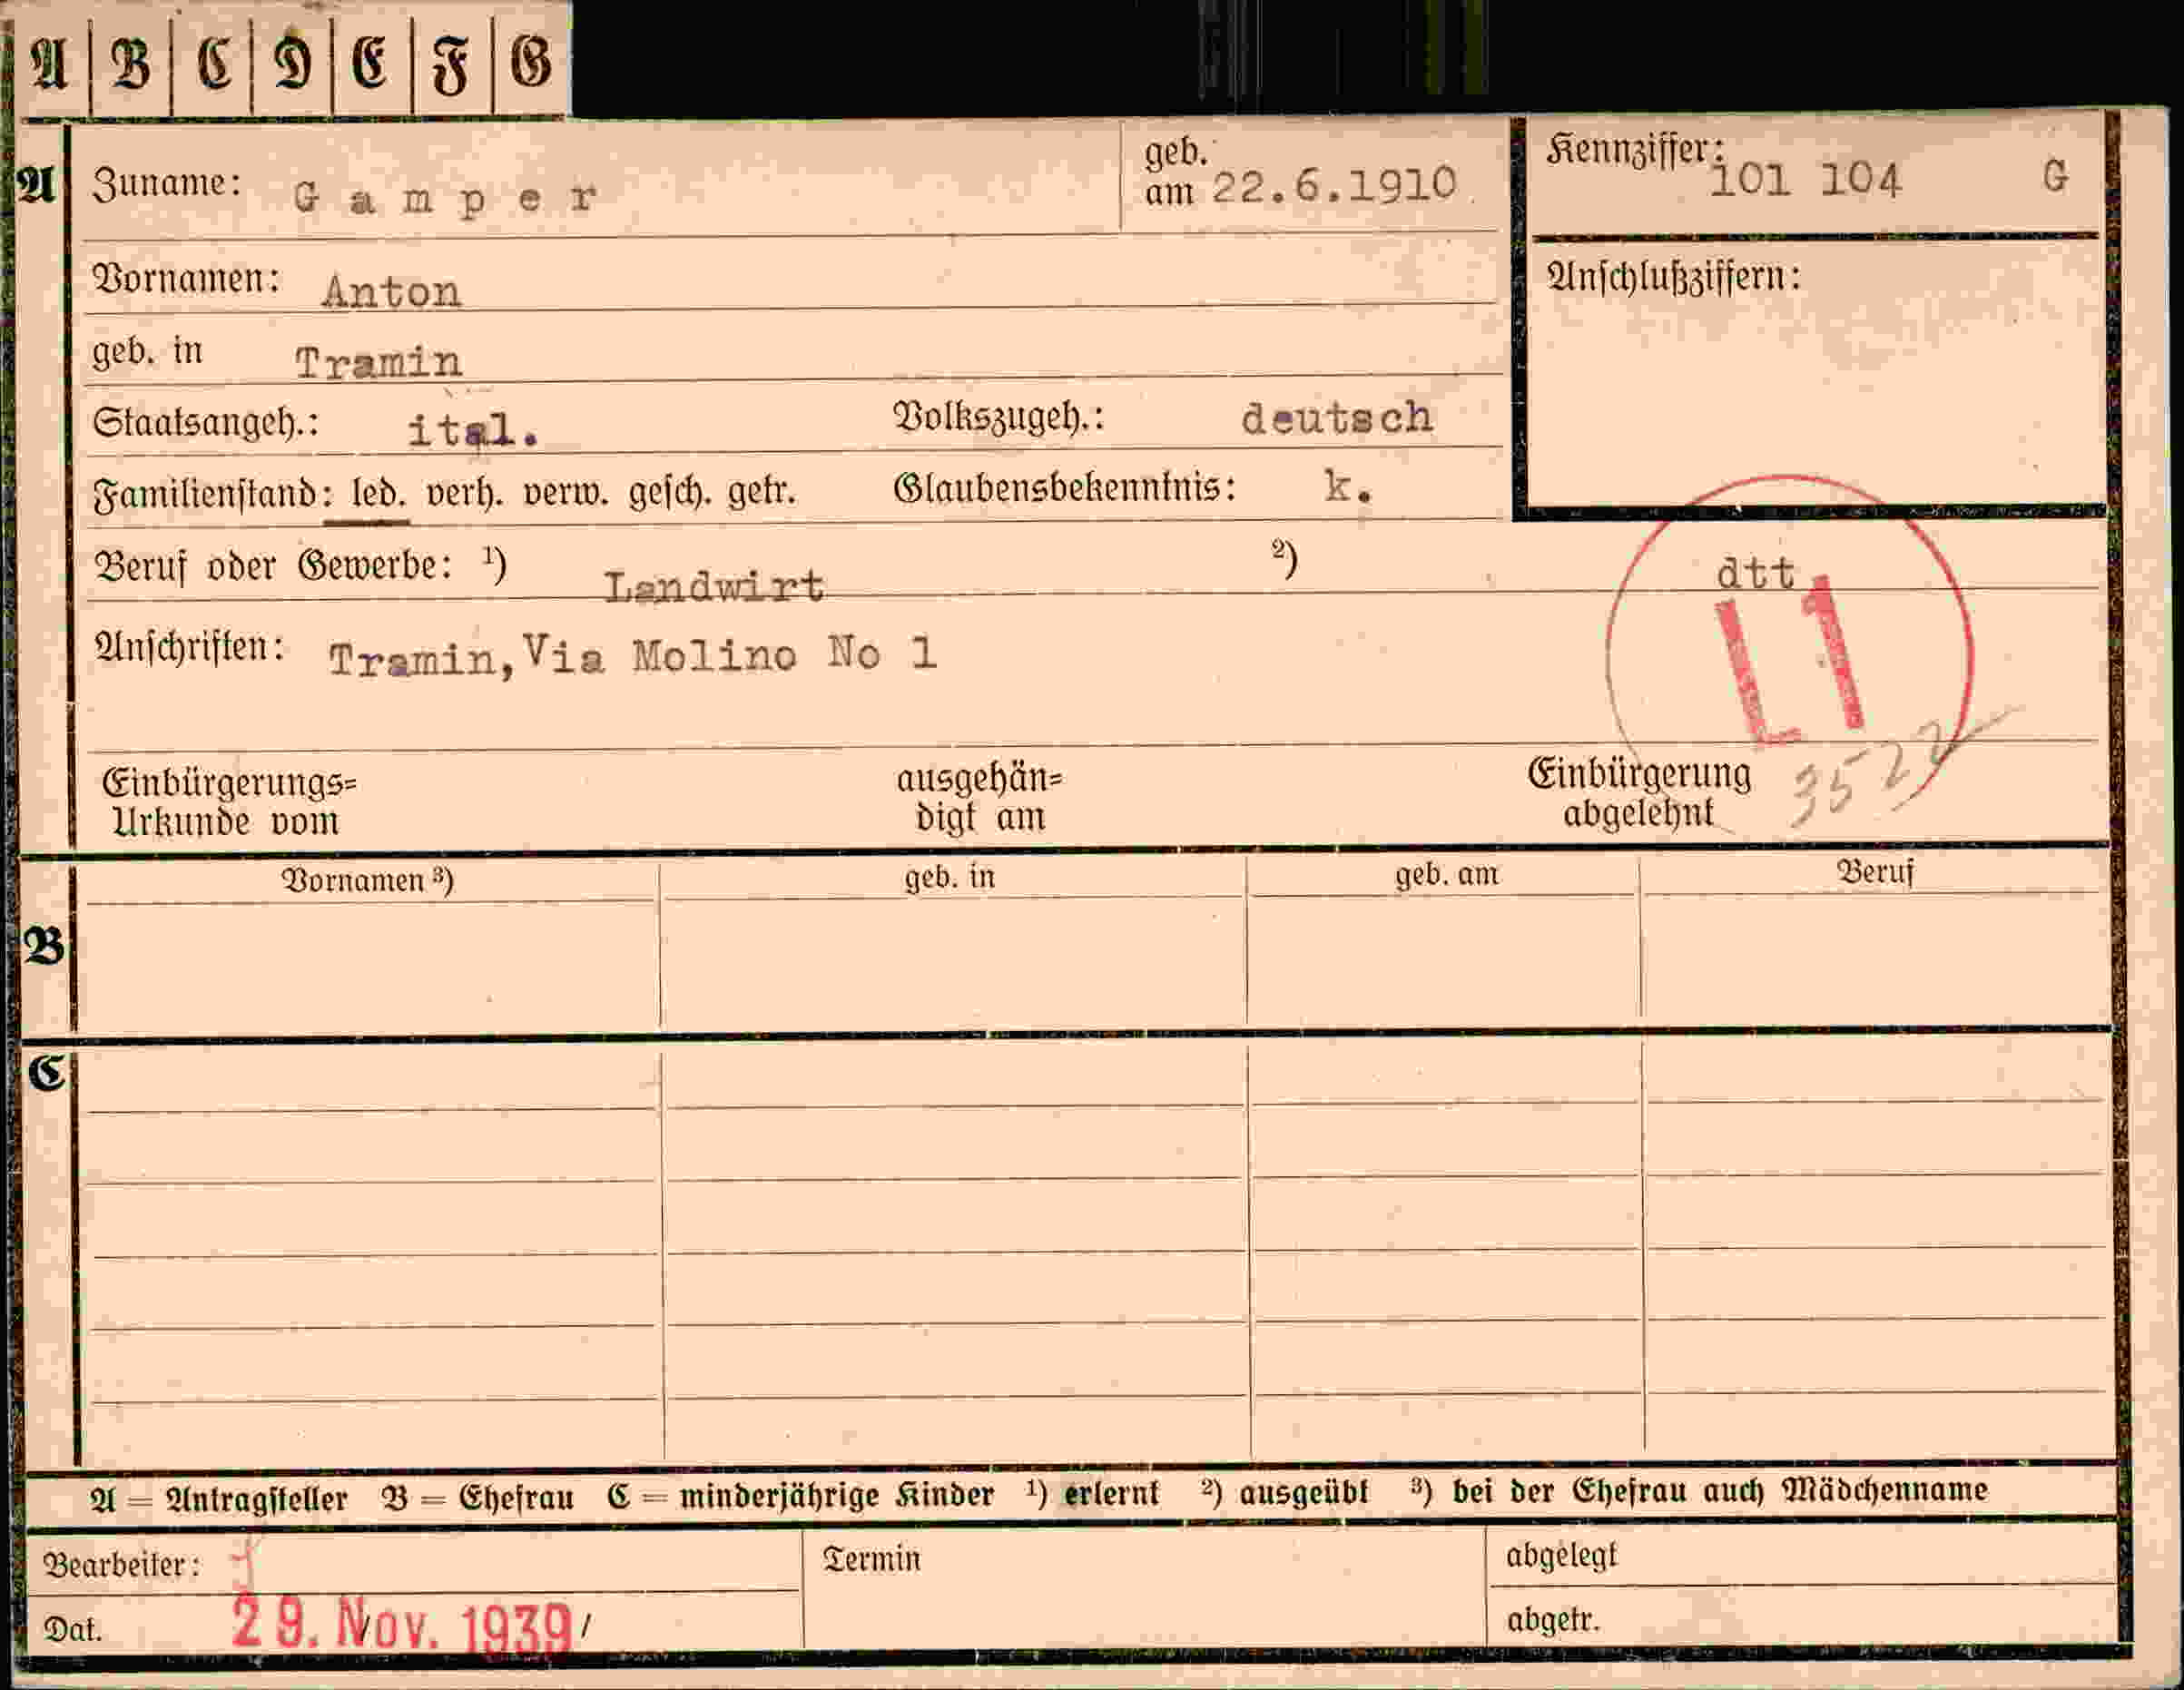 A B C D E F G
A Zuname: Gamper geb. am 22.6.1910 Kennziffer: 101 104 G
Vornamen: Anton Anschlußziffern:
geb. in Tramin
Staatsangeh.: ital. Volkszugeh.: deutsch
Familienstand: led. verh. verw. gesch. getr. Glaubensbekenntnis: k.
Beruf oder Gewerbe: ¹) Landwirt ²) dtt
L1
Anschriften: Tramin, Via Molino No 1
Einbürgerungs=
Urkunde vom
ausgehän=
digt am
Einbürgerung
abgelehnt
3522
B Vornamen ³) geb. in geb. am Beruf
C
A = Antragsteller B = Ehefrau C = minderjährige Kinder ¹) erlernt ²) ausgeübt ³) bei der Ehefrau auch Mädchenname
Bearbeiter: Termin abgelegt
Dat. 29. Nov. 1939 abgetr.